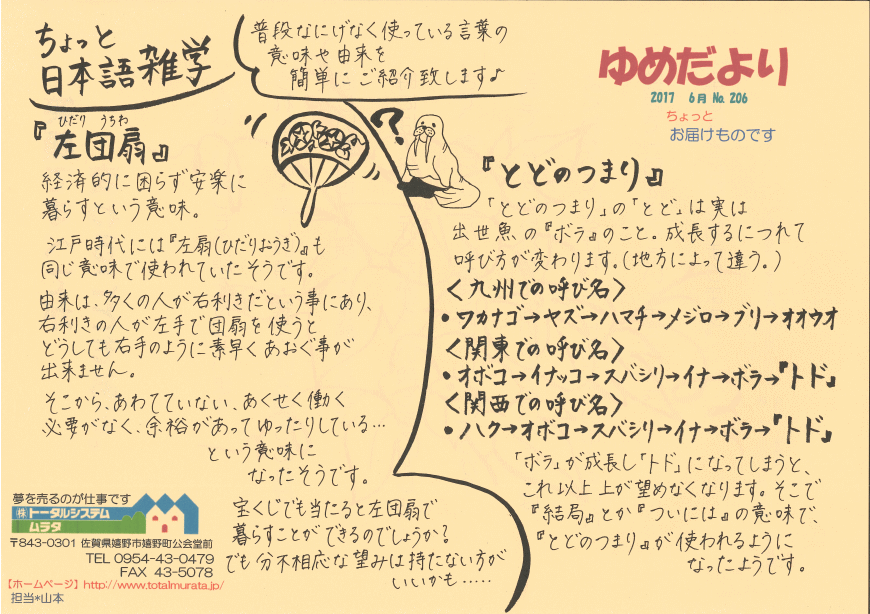 ちょっと
日本語雑学
普段なにげなく使っている言葉の
意味や由来を
簡単にご紹介致します♪
ゆめだより
2017 6月 No. 206
ちょっと
お届けものです
ひだり うちわ
『左団扇』
経済的に困らず安楽に
暮らすという意味。
江戸時代には『左扇(ひだりおうぎ)』も
同じ意味で使われていたそうです。
由来は、多くの人が右利きだという事にあり、
右利きの人が左手で団扇を使うと
どうしても右手のように素早くあおぐ事が
出来ません。
そこから、あわてていない、あくせく働く
必要がなく、余裕があってゆったりしている…
という意味に
なったそうです。
宝くじでも当たると左団扇で
暮らすことができるのでしょうか?
でも分不相応な望みは持たない方が
いいかも……
?
『とどのつまり』
「とどのつまり」の「とど」は実は
出世魚の『ボラ』のこと。成長するにつれて
呼び方が変わります。(地方によって違う。)
<九州での呼び名>
・ワカナゴ→ヤズ→ハマチ→メジロ→ブリ→オオウオ
<関東での呼び名>
・オボコ→イナッコ→スバシリ→イナ→ボラ→『トド』
<関西での呼び名>
・ハク→オボコ→スバシリ→イナ→ボラ→『トド』
「ボラ」が成長し「トド」になってしまうと、
これ以上 上が望めなくなります。そこで
『結局』とか『ついには』の意味で、
『とどのつまり』が使われるように
なったようです。
夢を売るのが仕事です
㈱トータルシステム
ムラタ
〒843-0301 佐賀県嬉野市嬉野町公会堂前
TEL 0954-43-0479
FAX 43-5078
【ホームページ】http://www.totalmurata.jp/
担当*山本